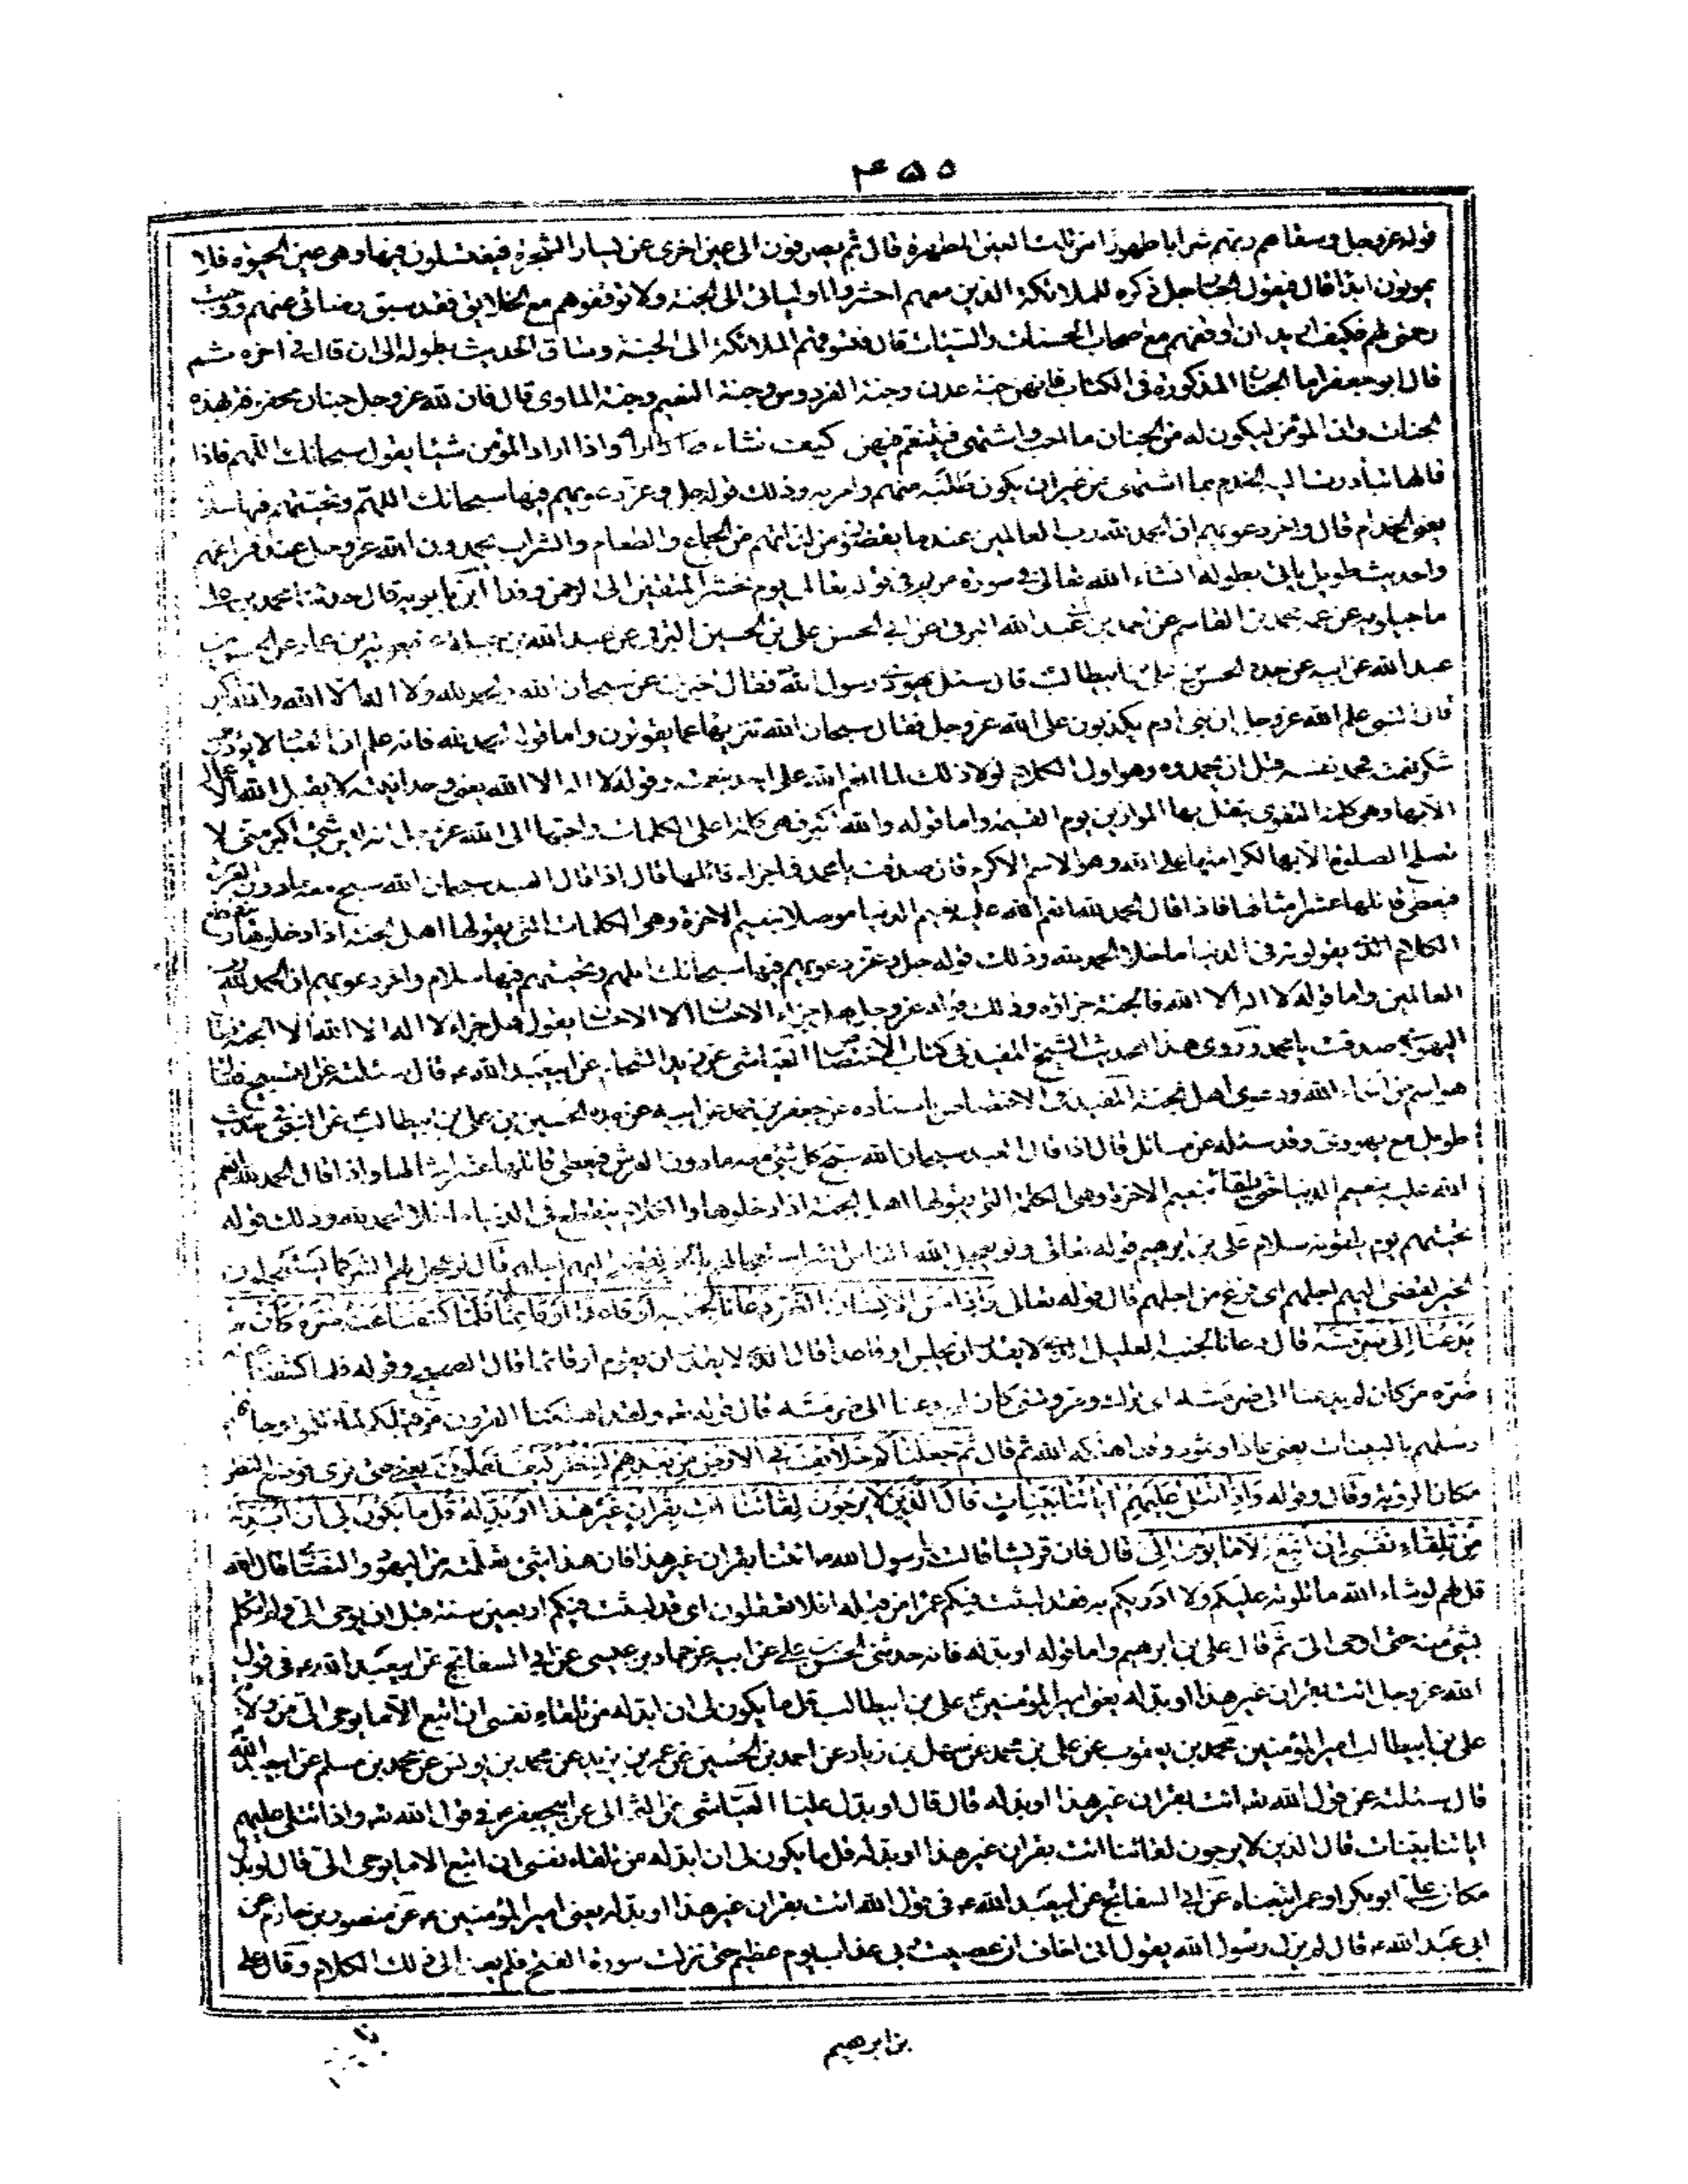 ٤٥٥
قوله عز وجل وسقاهم ربهم شرابا طهورا من تلك العين المطهرة قال ثم يصرفون الى عين اخرى عن يسار الشجرة فيغتسلون فيها وهى عين الحيوة فلا
يموتون ابدا قال فيقول الجبار جل ذكره للملائكة الذين معهم احشروا اوليائى الى الجنة ولا توقفوهم مع الخلايق فقد سبق رضائى عنهم ووجبت
رحمتى لهم فكيف اريد ان اوقفهم مع اصحاب الحسنات والسيئات قال فتسوقهم الملائكة الى الجنة وساق الحديث بطوله الى ان قال فى اخره ثم
قال ابو جعفر اما الجنان المذكورة فى الكتاب فانهن جنة عدن وجنة الفردوس وجنة النعيم وجنة الماوى قال فان لله عز وجل جنان محفوفة بهذه
الجنات وان المؤمن ليكون له من الجنان ما احب واشتهى فيتنعم فيهن كيف نشاء واذا اراد المؤمن شيئا يقول سبحانك اللهم فاذا
قالها تبادرت اليه الخدم بما اشتهى من غير ان يكون طلبه منهم وامر به وذلك قوله جل وعز دعويهم فيها سبحانك اللهم وتحيتهم فيها سلام
يعنى الخدام قال واخر دعويهم ان الحمد لله رب العالمين عند ما يقضون من لذاتهم من الجماع والطعام والشراب يحمدون الله عز وجل عند فراغهم
والحديث طويل ياتى بطوله انشاء الله تعالى فى سورة مريم فى قوله تعالى يوم نحشر المتقين الى الرحمن وفدا ابن بابويه قال حدثنا محمد بن على
ماجيلويه عن عمه محمد بن القاسم عن احمد بن عبد الله البرقى عن ابى الحسن على بن الحسين البرقى عن عبد الله بن جبلة عن معوية بن عمار عن الحسن بن
عبد الله عن ابيه عن جده الحسن بن على بن ابيطالب قال سئل يهودى رسول الله فقال اخبرنى عن سبحان الله والحمد لله ولا اله الا الله والله اكبر
قال النبى علم الله عز وجل ان بنى ادم يكذبون على الله عز وجل فقال سبحان الله تنزيها عما يقولون واما قوله الحمد لله فانه علم ان العباد لا يؤدون
شكر نعمته فحمد نفسه قبل ان يحمدوه وهو اول الكلام لولا ذلك لما انعم الله على احد بنعمته وقوله لا اله الا الله يعنى وحدانيته لا يقبل الله الاعمال
الا بها وهى كلمة التقوى يثقل بها الموازين يوم القيمة واما قوله والله اكبر فهى كلمة اعلى الكلمات واحبها الى الله عز وجل انه ليس شئ اكبر منى لا
تصلح الصلوة الا بها لكرامتها على الله وهو الاسم الاكرم قال صدقت يا محمد فما جزاء قائلها قال اذا قال العبد سبحان الله سبح معه ما دون العرش
فيعطى قائلها عشر امثالها فاذا قال الحمد لله انعم الله عليه بنعيم الدنيا موصلا بنعيم الاخرة وهى الكلمات التى يقولها اهل الجنة اذا دخلوها
الكلام الذى يقولونه فى الدنيا ما خلا الحمد لله وذلك قوله جل وعز دعويهم فيها سبحانك اللهم وتحيتهم فيها سلام واخر دعويهم ان الحمد لله رب
العالمين واما قوله لا اله الا الله فالجنة جزاؤه وذلك قوله عز وجل هل جزاء الاحسان الا الاحسان يقول هل جزاء لا اله الا الله الا الجنة فقال
اليهودى صدقت يا محمد وروى هذا الحديث الشيخ المفيد فى كتاب الاختصاص العياشى عن زيد الشحام عن ابيعبد الله ع قال سئلته عن التسبيح فقال
هو اسم من اسماء الله ودعوى اهل الجنة المفيد فى الاختصاص باسناده عن جعفر بن محمد عن ابيه عن جده الحسين بن على بن ابيطالب عن النبى فى حديث
طويل مع يهودى وقد سئله عن مسائل قال اذا قال العبد سبحان الله سبح كل شئ معه ما دون العرش فيعطى قائلها عشر امثالها واذا قال الحمد لله انعم
الله عليه بنعيم الدنيا حتى يلقاه بنعيم الاخرة وهى الكلمة التى يقولها اهل الجنة اذا دخلوها والكلام ينقطع فى الدنيا ما خلا الحمد لله وذلك قوله
تحيتهم يوم يلقونه سلام على بن ابرهيم قوله تعالى ولو يعجل الله للناس الشر استعجالهم بالخير لقضى اليهم اجلهم قال لو عجل لهم الشر كما يستعجلون
الخير لقضى اليهم اجلهم اى فرغ من اجلهم قال قوله تعالى واذا مس الانسان الضر دعانا لجنبه او قاعدا او قائما فلما كشفنا عنه ضره مر كان لم
يدعنا الى ضر مسه قال دعانا لجنبه العليل الذى لا يقدر ان يجلس او قاعدا قال الذى لا يقدر ان يقوم او قائما قال الصحيح وقوله فلما كشفنا عنه
ضره مر كان لم يدعنا الى ضر مسه اى ترك ومر ونسى كان لم يدعنا الى ضر مسه قال قوله تعالى ولقد اهلكنا القرون من قبلكم لما ظلموا وجائتهم
رسلهم بالبينات يعنى عادا وثمود وقد اهلكه الله ثم قال ثم جعلناكم خلائف فى الارض من بعدهم لننظر كيف تعملون يعنى حتى نرى فوضع النظر
مكان الرؤية وقال وقوله واذا تتلى عليهم اياتنا بينات قال الذين لا يرجون لقائنا ائت بقران غير هذا او بدله قل ما يكون لى ان ابدله
من تلقاء نفسى ان اتبع الا ما يوحى الى قال فان قريشا قالت يا رسول الله ما ائتنا بقران غير هذا فان هذا شئ تعلمته من اليهود والنصارى قال الله
قل لهم لو شاء الله ما تلوته عليكم ولا ادريكم به فقد لبثت فيكم عمرا من قبله افلا تعقلون اى قد لبثت فيكم اربعين سنة قبل ان يوحى الى ولم اتكلم
بشئ منه حتى اوحى الى ثم قال على بن ابرهيم واما قوله او بدله فانه حدثنى الحسن بن على عن ابيه عن حماد بن عيسى عن ابى السفاتج عن ابيعبد الله ع فى قول
الله عز وجل ائت بقران غير هذا او بدله يعنى امير المؤمنين على بن ابيطالب قل ما يكون لى ان ابدله من تلقاء نفسى ان اتبع الا ما يوحى الى من ولاية
على بن ابيطالب امير المؤمنين محمد بن يعقوب عن على بن محمد عن سهل بن زياد عن احمد بن الحسين عن عمر بن يزيد عن محمد بن يونس عن محمد بن مسلم عن ابيعبد الله
قال سئلته عن قول الله ائت بقران غير هذا او بدله قال قال او بدل عليا العياشى عن الثمالى عن ابيجعفر ع فى قول الله واذا تتلى عليهم
اياتنا بينات قال الذين لا يرجون لقائنا ائت بقران غير هذا او بدله قل ما يكون لى ان ابدله من تلقاء نفسى ان اتبع الا ما يوحى الى قال لو بدل
مكان على ابو بكر او عمر اتبعناه عن ابى السفاتج عن ابيعبد الله ع فى قول الله ائت بقران غير هذا او بدله يعنى امير المؤمنين ع عن منصور بن حازم عن
ابى عبد الله ع قال لم يزل رسول الله يقول انى اخاف ان عصيت ربى عذاب يوم عظيم حتى نزلت سورة الفتح فلم يعد الى ذلك الكلام وقال على
بن ابرهيم